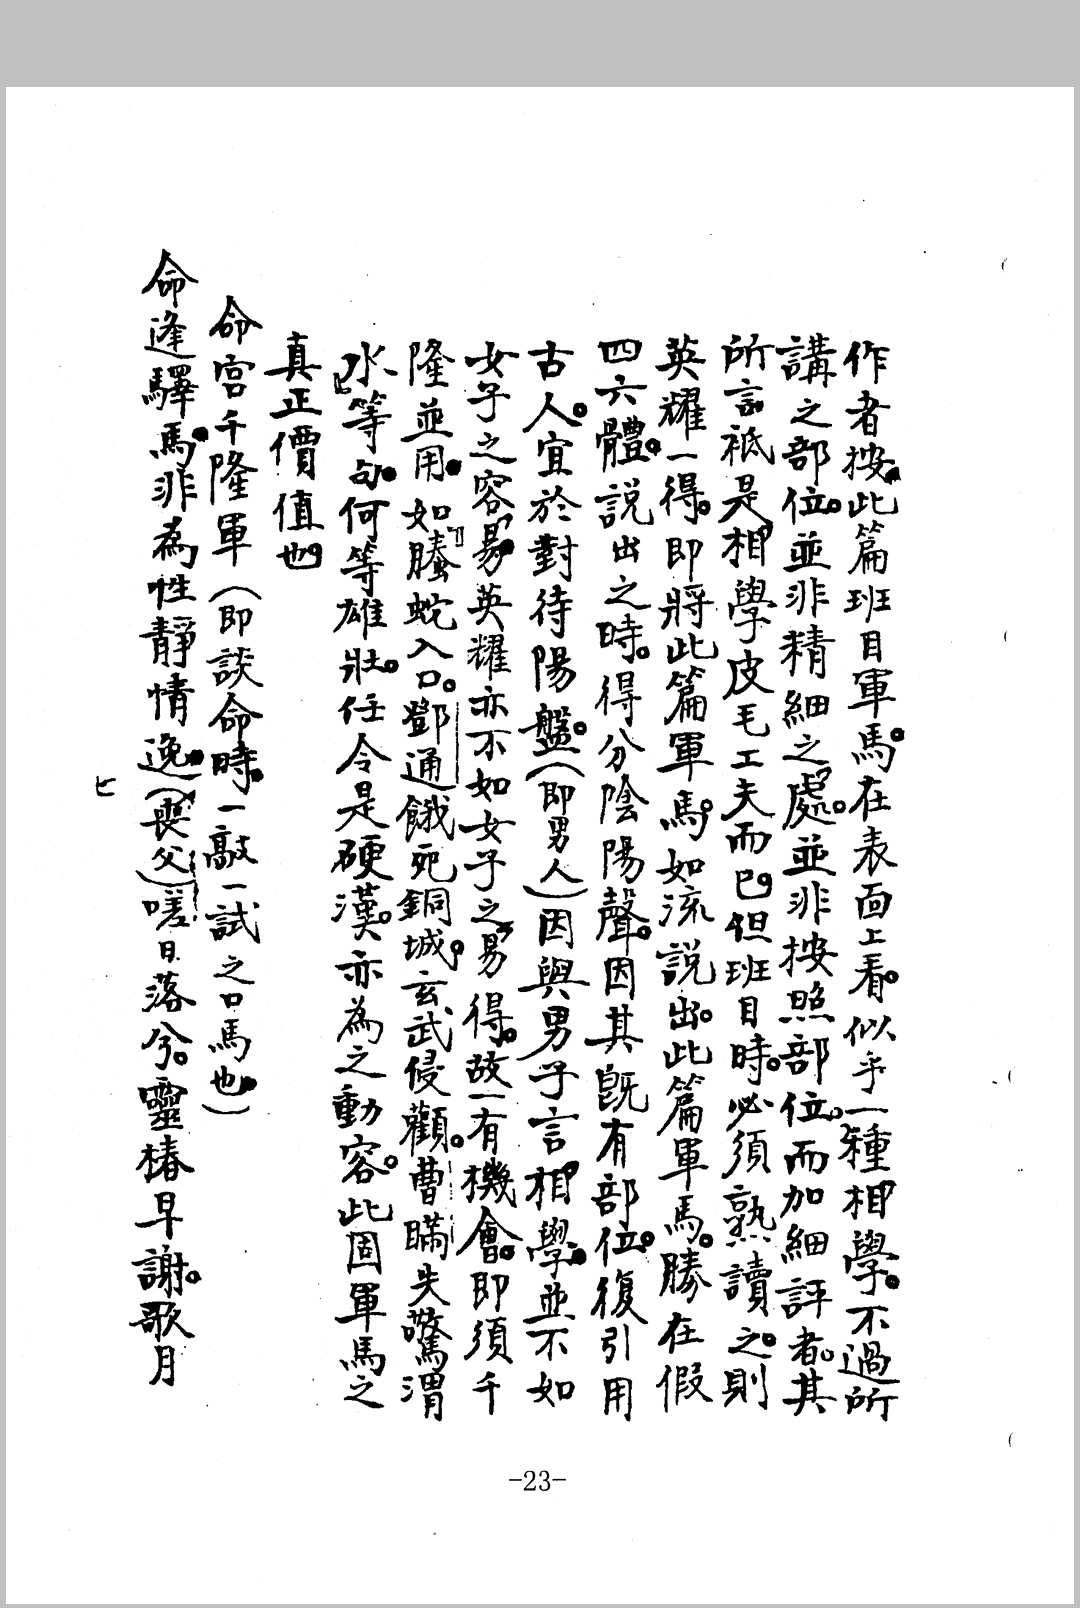 作者按。此篇班目軍馬。在表面上看。似乎一種相學。不過所
講之部位。並非精細之處。並非按照部位。而加細評者。其
所言祗是相學皮毛工夫而已。但班目時。必須熟讀之。則
英耀一得。即將此篇軍馬。如流說出。此篇軍馬。勝在假
四六體。說出之時。得分陰陽聲。因其既有部位。復引用
古人。宜於對待陽盤。(即男人)因與男子言相學。並不如
女子之容易。英耀亦不如女子之易得。故一有機會。即須千
隆並用。如螣蛇入口。鄧通餓死銅城。玄武侵顴。曹瞞失驚渭
水等句。何等雄壯。任令是硬漢。亦為之動容。此固軍馬之
真正價值也。
命宮千隆軍(即談命時。一敲一試之口馬也。)
命逢驛馬。非為性靜情逸。(喪父)嗟日落兮。靈椿早謝。歌月
-23-